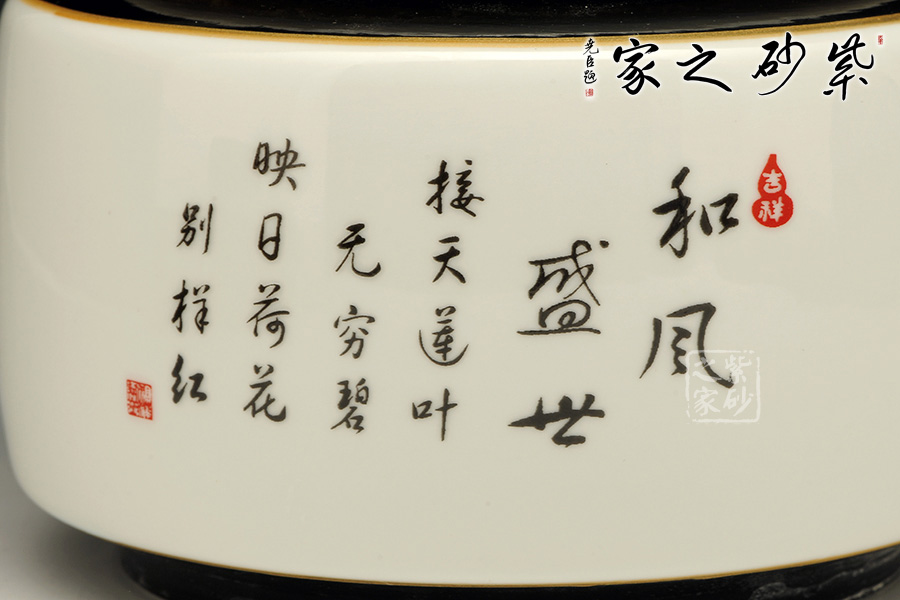 紫砂之家
尧臣题
吉祥
和风
盛世
接天莲叶
无穷碧
映日荷花
别样红
紫砂之家